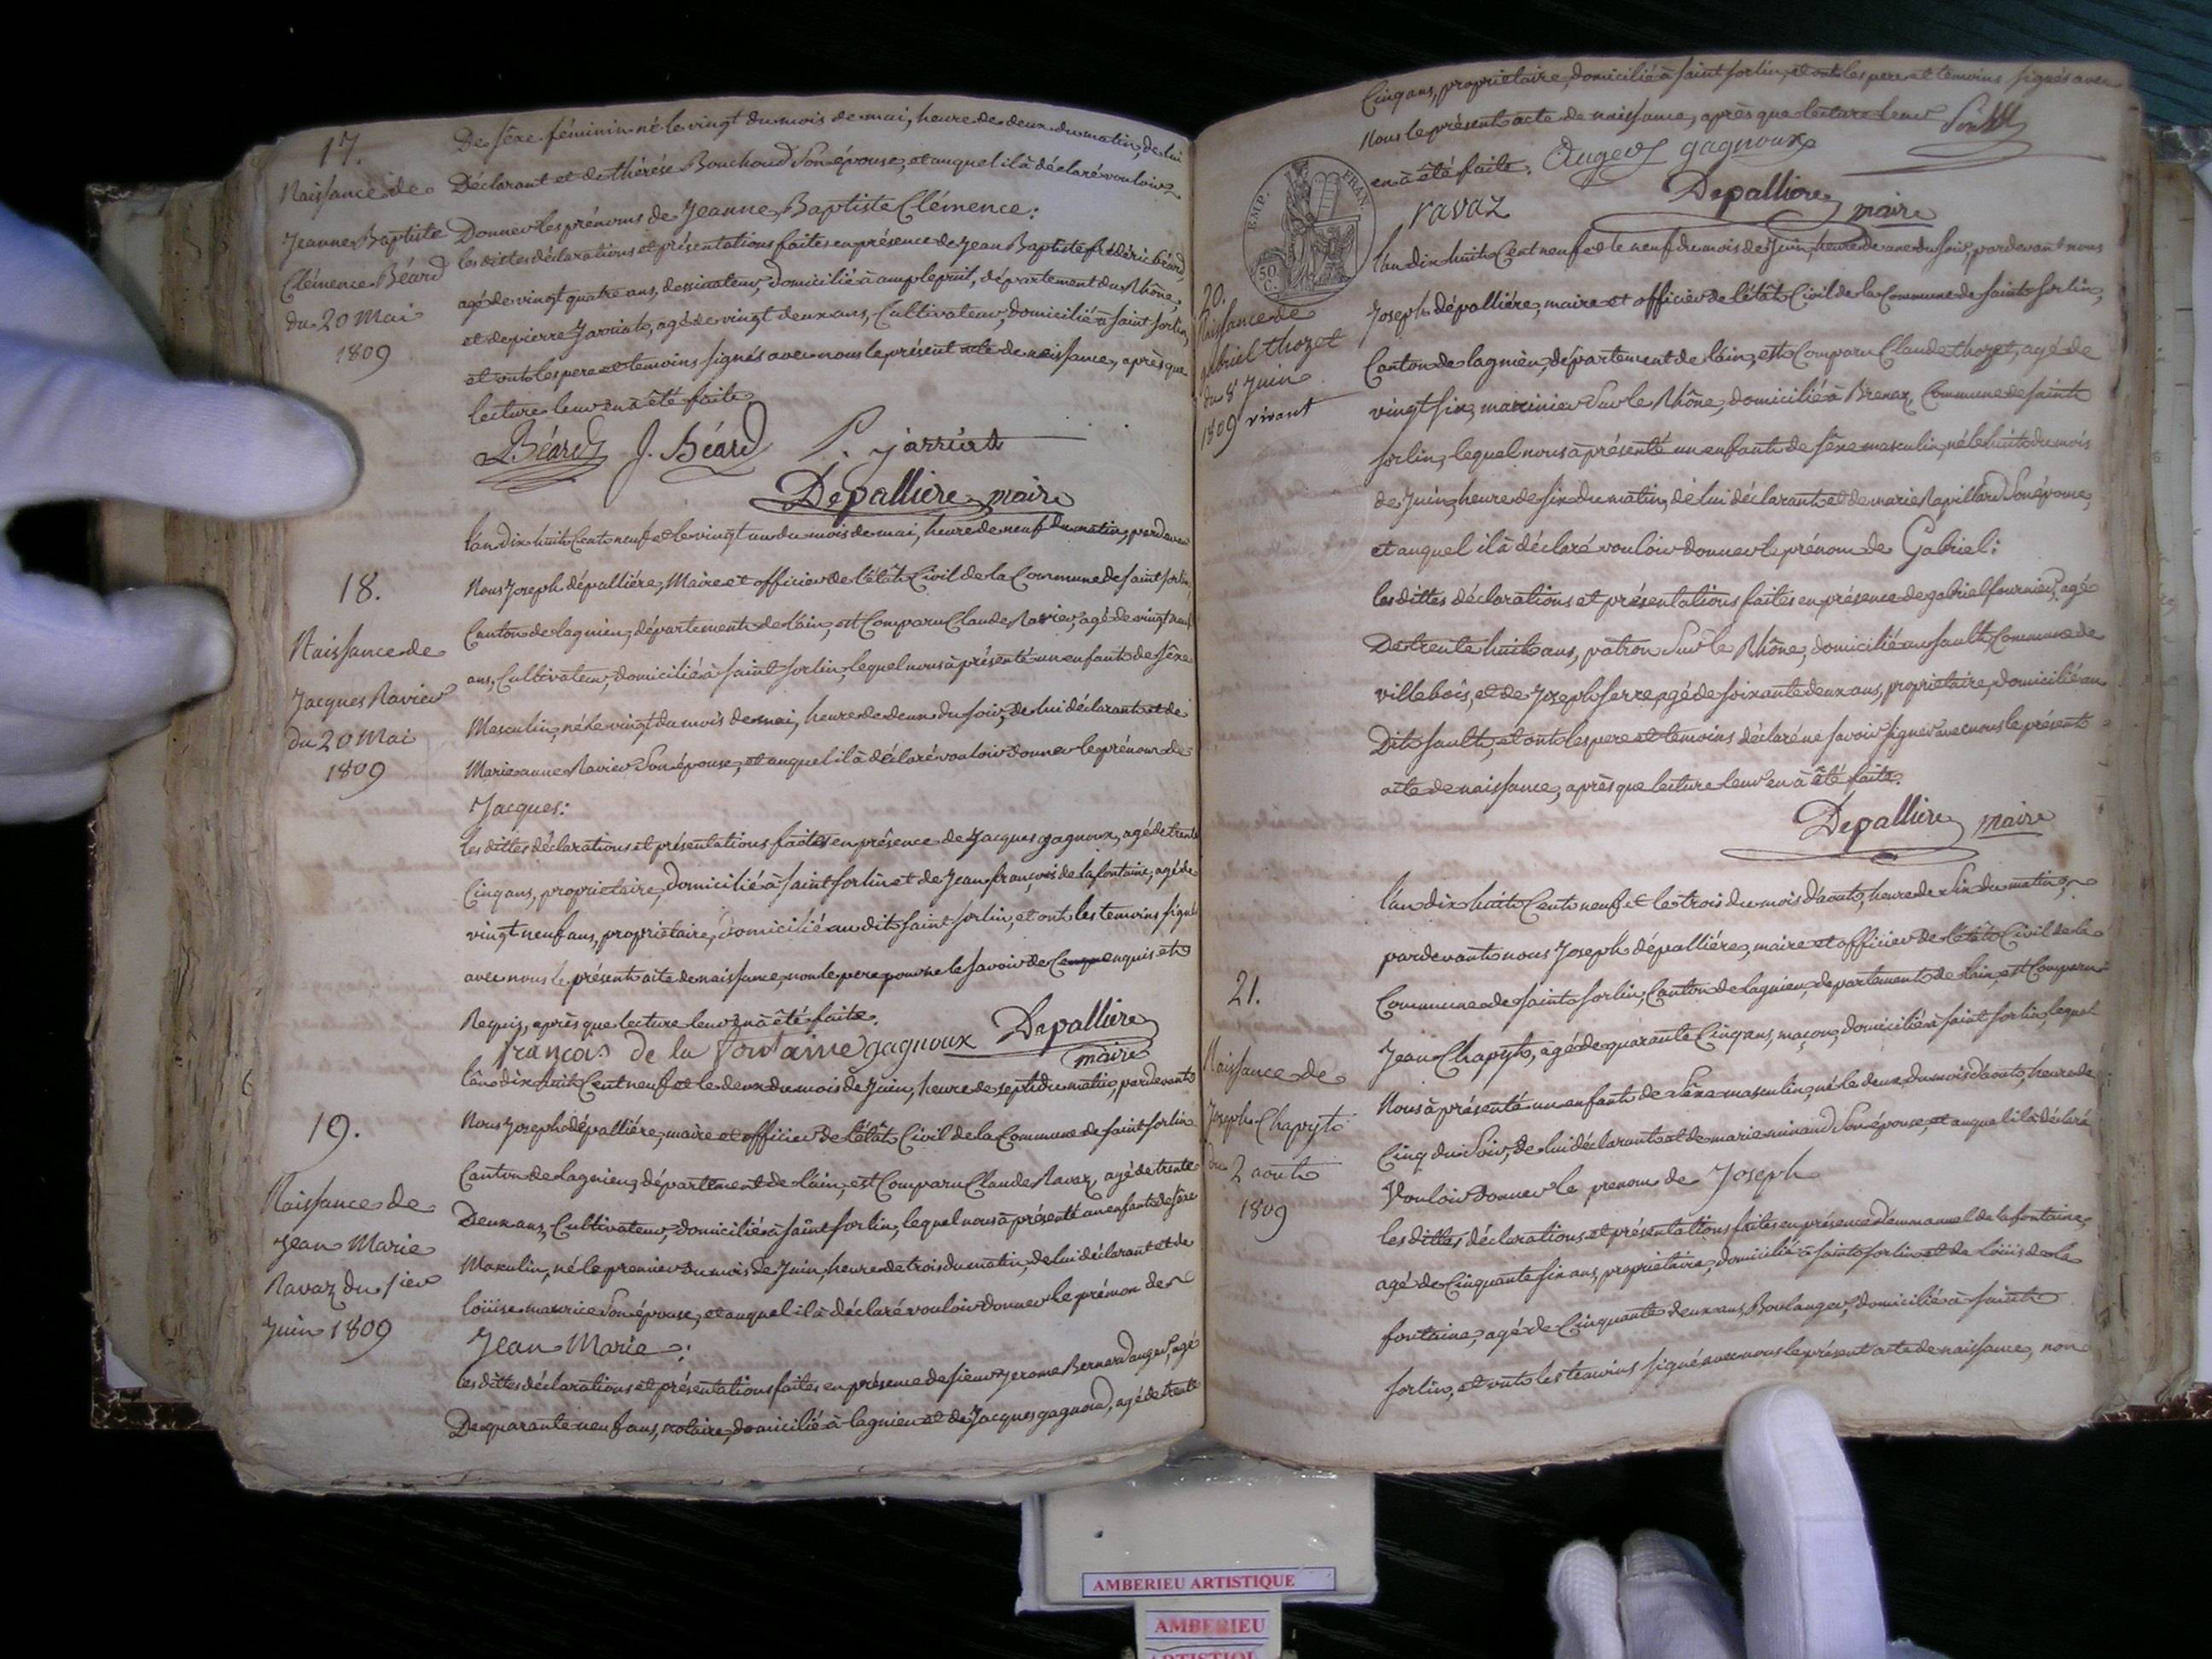 17.
Naissance de
Jeanne Baptiste
Clémence Béard
du 20 Mai
1809
De Sêxe féminin né le vingt du mois de mai, heure de deux du matin, de lui
Déclarant et de thérèse Bouchoud Son épouse, et auquel il à déclaré vouloir
Donner les prénoms de Jeanne Baptiste Clémence:
les dittes déclarations et présentations faites en présence de Jean Baptiste frédéric béard,
agé de vingt quatre ans, dessinateur, domicilié à amplepuit, département du Rhône,
et de pierre Jarriat, agé de vingt deux ans, Cultivateur, domicilié à saint sorlin,
et ont les pere et temoins signés avec nous le présent acte de naissance, après que
lecture leur en à été faite
Béard J. Béard P. jarriat
Depalliere maire
18.
Naissance de
Jacques Ravier
du 20 Mai
1809
l'an dix huit Cent neuf et le vingt un du mois de mai, heure de neuf du matin, pardevant
Nous Joseph dépalliére, Maire et officier de l'étât Civil de la Commune de saint sorlin,
Canton de lagnieu, département de l'ain, est Comparu Claude Ravier, agé de vingt neuf
ans, Cultivateur, domicilié à saint sorlin, lequel nous à présenté un enfant de sêxe
Masculin, né le vingt du mois de mai, heure de deux du soir, de lui déclarant et de
Marie anne Ravier Son épouse, et auquel il à déclaré vouloir donner le prénom de
Jacques:
les dittes déclarations et présentations faites en présence de Jacques gagnoux, agé de trente
Cinq ans, proprietaire, domicilié à saint sorlin et de Jean françois de lafontaine, agé de
vingt neuf ans, propriétaire, domicilié au dit saint sorlin, et ont les temoins signé
avec nous le présent acte de naissance, non le pere pour ne le savoir de Ce enquis et
Requis, après que lecture leur en à été faite.
françois de la fontaine gagnoux Depalliere
maire
19.
Naissance de
Jean Marie
Ravaz du 1er
Juin 1809
l'an dix huit Cent neuf et le deux du mois de Juin, heure de sept du matin, pardevant
Nous Joseph dépalliére, maire et officier de l'étât Civil de la Commune de saint sorlin
Canton de lagnieu, département de l'ain, est Comparu Claude Ravaz, agé de trente
Deux ans, Cultivateur, domicilié à saint sorlin, lequel nous à présenté un enfant de sêxe
Masculin, né le premier du mois de Juin, heure de trois du matin, de lui déclarant et de
loüise maurice Son épouse, et auquel il à déclaré vouloir donner le prénom de
Jean Marie:
les dittes déclarations et présentations faites en présence de sieur Jerome Bernard auger, agé
De quarante neuf ans, notaire, domicilié à lagnieu et de Jacques gagnoux, agé de trente
Cinq ans, proprietaire, domicilié à saint sorlin, et ont les pere et temoins signés avec
Nous le présent acte de naissance, après que lecture leur
en à été faite. Auger gagnoux
ravaz
Depalliere maire
EMP. FRAN.
50 C.
20.
Naissance de
gabriel thozet
du 8 Juin
1809 vivant
l'an dix huit Cent neuf et le neuf du mois de Juin, heure de une du soir, pardevant nous
Joseph dépalliére, maire et officier de l'étât Civil de la Commune de saint sorlin,
Canton de lagnieu, département de l'ain, est Comparu Claude thozet, agé de
vingt six, marinier Sur le Rhône, domicilié à Brenaz, Commune de saint
sorlin, lequel nous à présenté un enfant de sêxe masculin, né le huit du mois
de Juin, heure de six du matin, de lui déclarant et de marie Rapillard Son épouse,
et auquel il à déclaré vouloir donner le prénom de Gabriel:
les dittes déclarations et présentations faites en présence de gabriel fournier, agé
De trente huit ans, patron Sur le Rhône, domicilié au sault, Commune de
villebois, et de Joseph serre, agé de soixante deux ans, propriétaire, domicilié au
Dit sault, et ont les pere et temoins déclaré ne savoir signer avec nous le présent
acte de naissance, après que lecture leur en à été faite.
Depalliere maire
21.
Naissance de
Joseph Chapyt
du 2 aout
1809
l'an dix huit Cent neuf et le trois du mois d'aout, heure de six du matin,
pardevant nous Joseph dépalliére, maire et officier de l'étât Civil de la
Commune de saint sorlin, Canton de lagnieu, departement de l'ain, est Comparu
Jean Chapyt, agé de quarante Cinq ans, maçon, domicilié à saint sorlin, lequel
Nous à présenté un enfant de Sêxe masculin, né le deux du mois d'aout, heure de
Cinq du Soir, de lui déclarant et de marie Son épouse, et auquel il à déclaré
Vouloir donner le prenom de Joseph
les dittes déclarations et présentations faites en présence d'emmanuel de lafontaine,
agé de Cinquante six ans, propriétaire, domicilié à saint sorlin et de loüis de la
fontaine, agé de Cinquante deux ans, Boulanger, domicilié à saint
sorlin, et ont les temoins signé avec nous le présent acte de naissance, non
AMBERIEU ARTISTIQUE
AMBERIEU
ARTISTIQUE